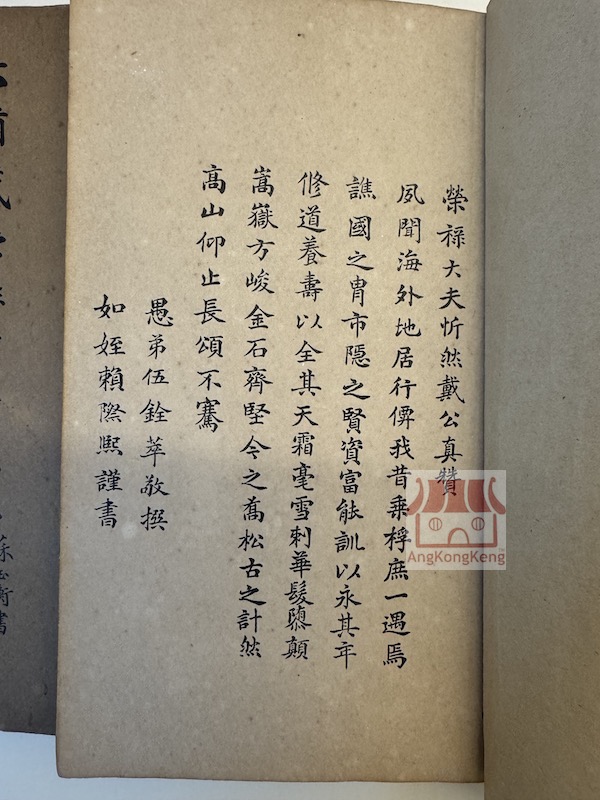 榮祿大夫忻然戴公真贊
夙聞海外地居行俾我昔乘桴庶一遇焉
譙國之胄市隱之賢資富能訓以永其年
修道養壽以全其天霜毫雪刺華髮顛
嵩嶽方峻金石齊堅今之喬松古之計然
高山仰止長頌不騫
愚弟伍銓萃敬撰
如姪賴際熙謹書
AngKongKeng
書